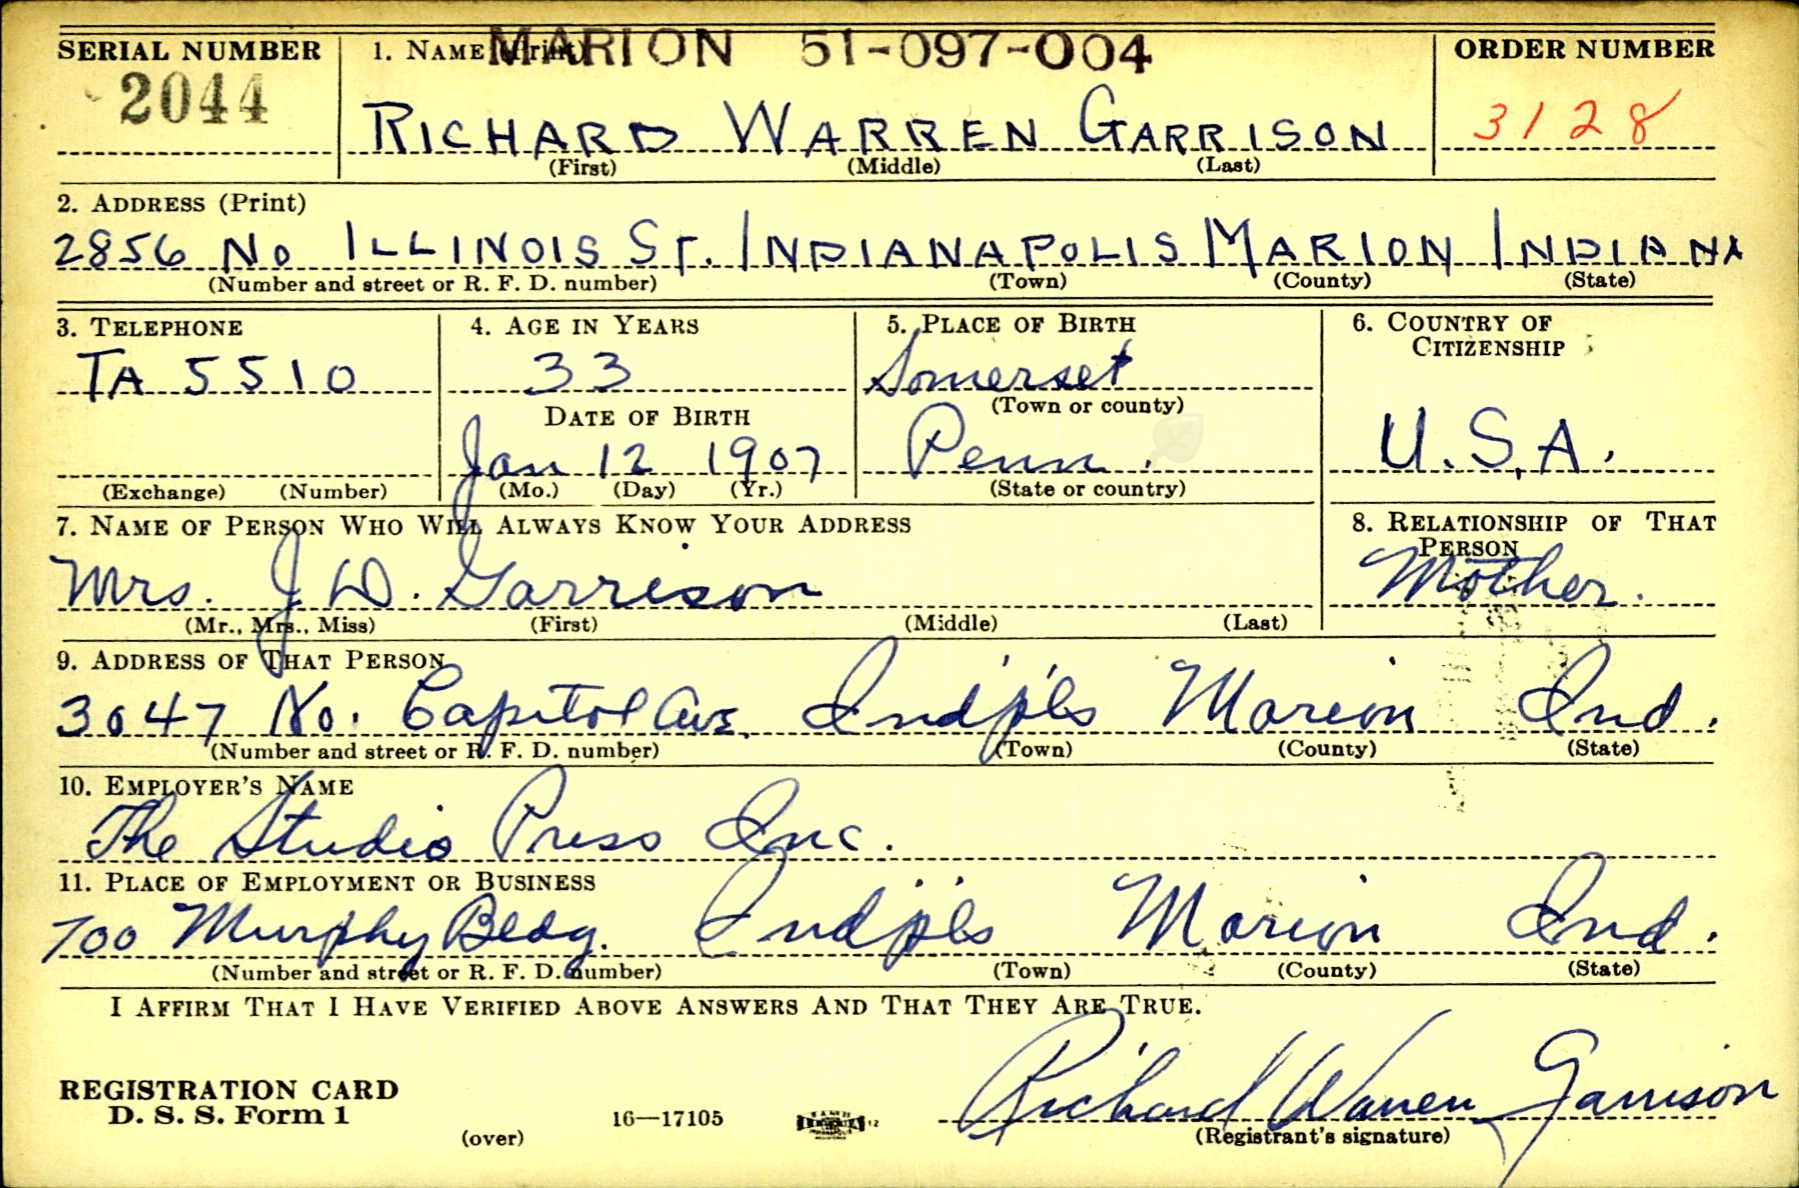 SERIAL NUMBER 1. NAME (Print) MARION 51-097-004 ORDER NUMBER
2044 RICHARD WARREN GARRISON 3128
(First) (Middle) (Last)
2. ADDRESS (Print)
2856 No ILLINOIS ST. INDIANAPOLIS MARION INDIANA
(Number and street or R. F. D. number) (Town) (County) (State)
3. TELEPHONE 4. AGE IN YEARS 5. PLACE OF BIRTH 6. COUNTRY OF
CITIZENSHIP
TA 5510 33 Somerset
DATE OF BIRTH (Town or county)
Jan 12 1907 Penn. U.S.A.
(Exchange) (Number) (Mo.) (Day) (Yr.) (State or country)
7. NAME OF PERSON WHO WILL ALWAYS KNOW YOUR ADDRESS 8. RELATIONSHIP OF THAT
PERSON
Mrs. J. D. Garrison Mother.
(Mr., Mrs., Miss) (First) (Middle) (Last)
9. ADDRESS OF THAT PERSON
3047 No. Capitol Ave. Ind'pls Marion Ind.
(Number and street or R. F. D. number) (Town) (County) (State)
10. EMPLOYER'S NAME
The Studio Press Inc.
11. PLACE OF EMPLOYMENT OR BUSINESS
700 Murphy Bldg. Ind'pls Marion Ind.
(Number and street or R. F. D. number) (Town) (County) (State)
I AFFIRM THAT I HAVE VERIFIED ABOVE ANSWERS AND THAT THEY ARE TRUE.
REGISTRATION CARD Richard Warren Garrison
D. S. S. Form 1 16—17105
(over) (Registrant's signature)